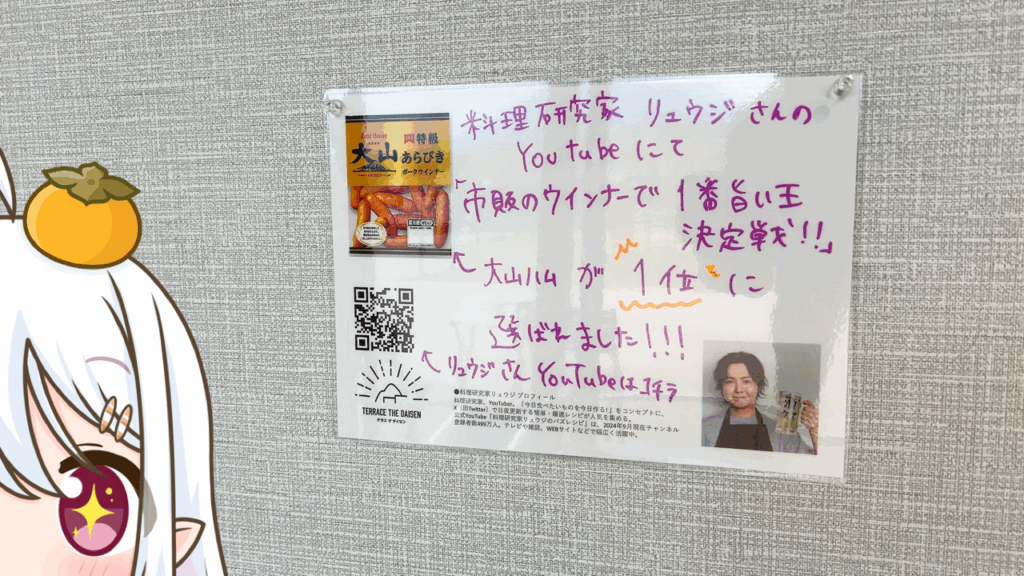 料理研究家 リュウジさんの
YouTubeにて
「市販のウインナーで 1番旨い王
決定戦だ!!」
大山ハム が 1位 に
選ばれました!!!
リュウジさん YouTubeはコチラ
特級
大山
あらびき
ポークウインナー
TERRACE THE DAISEN
テラス ザ ダイセン
●料理研究家リュウジ プロフィール
料理研究家、YouTuber。「今日食べたいものを今日作る!」をコンセプトに、
X(旧Twitter)で日夜更新する簡単・爆速レシピが人気を集める。
公式YouTube「料理研究家リュウジのバズレシピ」は、2024年9月現在チャンネル
登録者数499万人。テレビや雑誌、WEBサイトなどで幅広く活躍中。